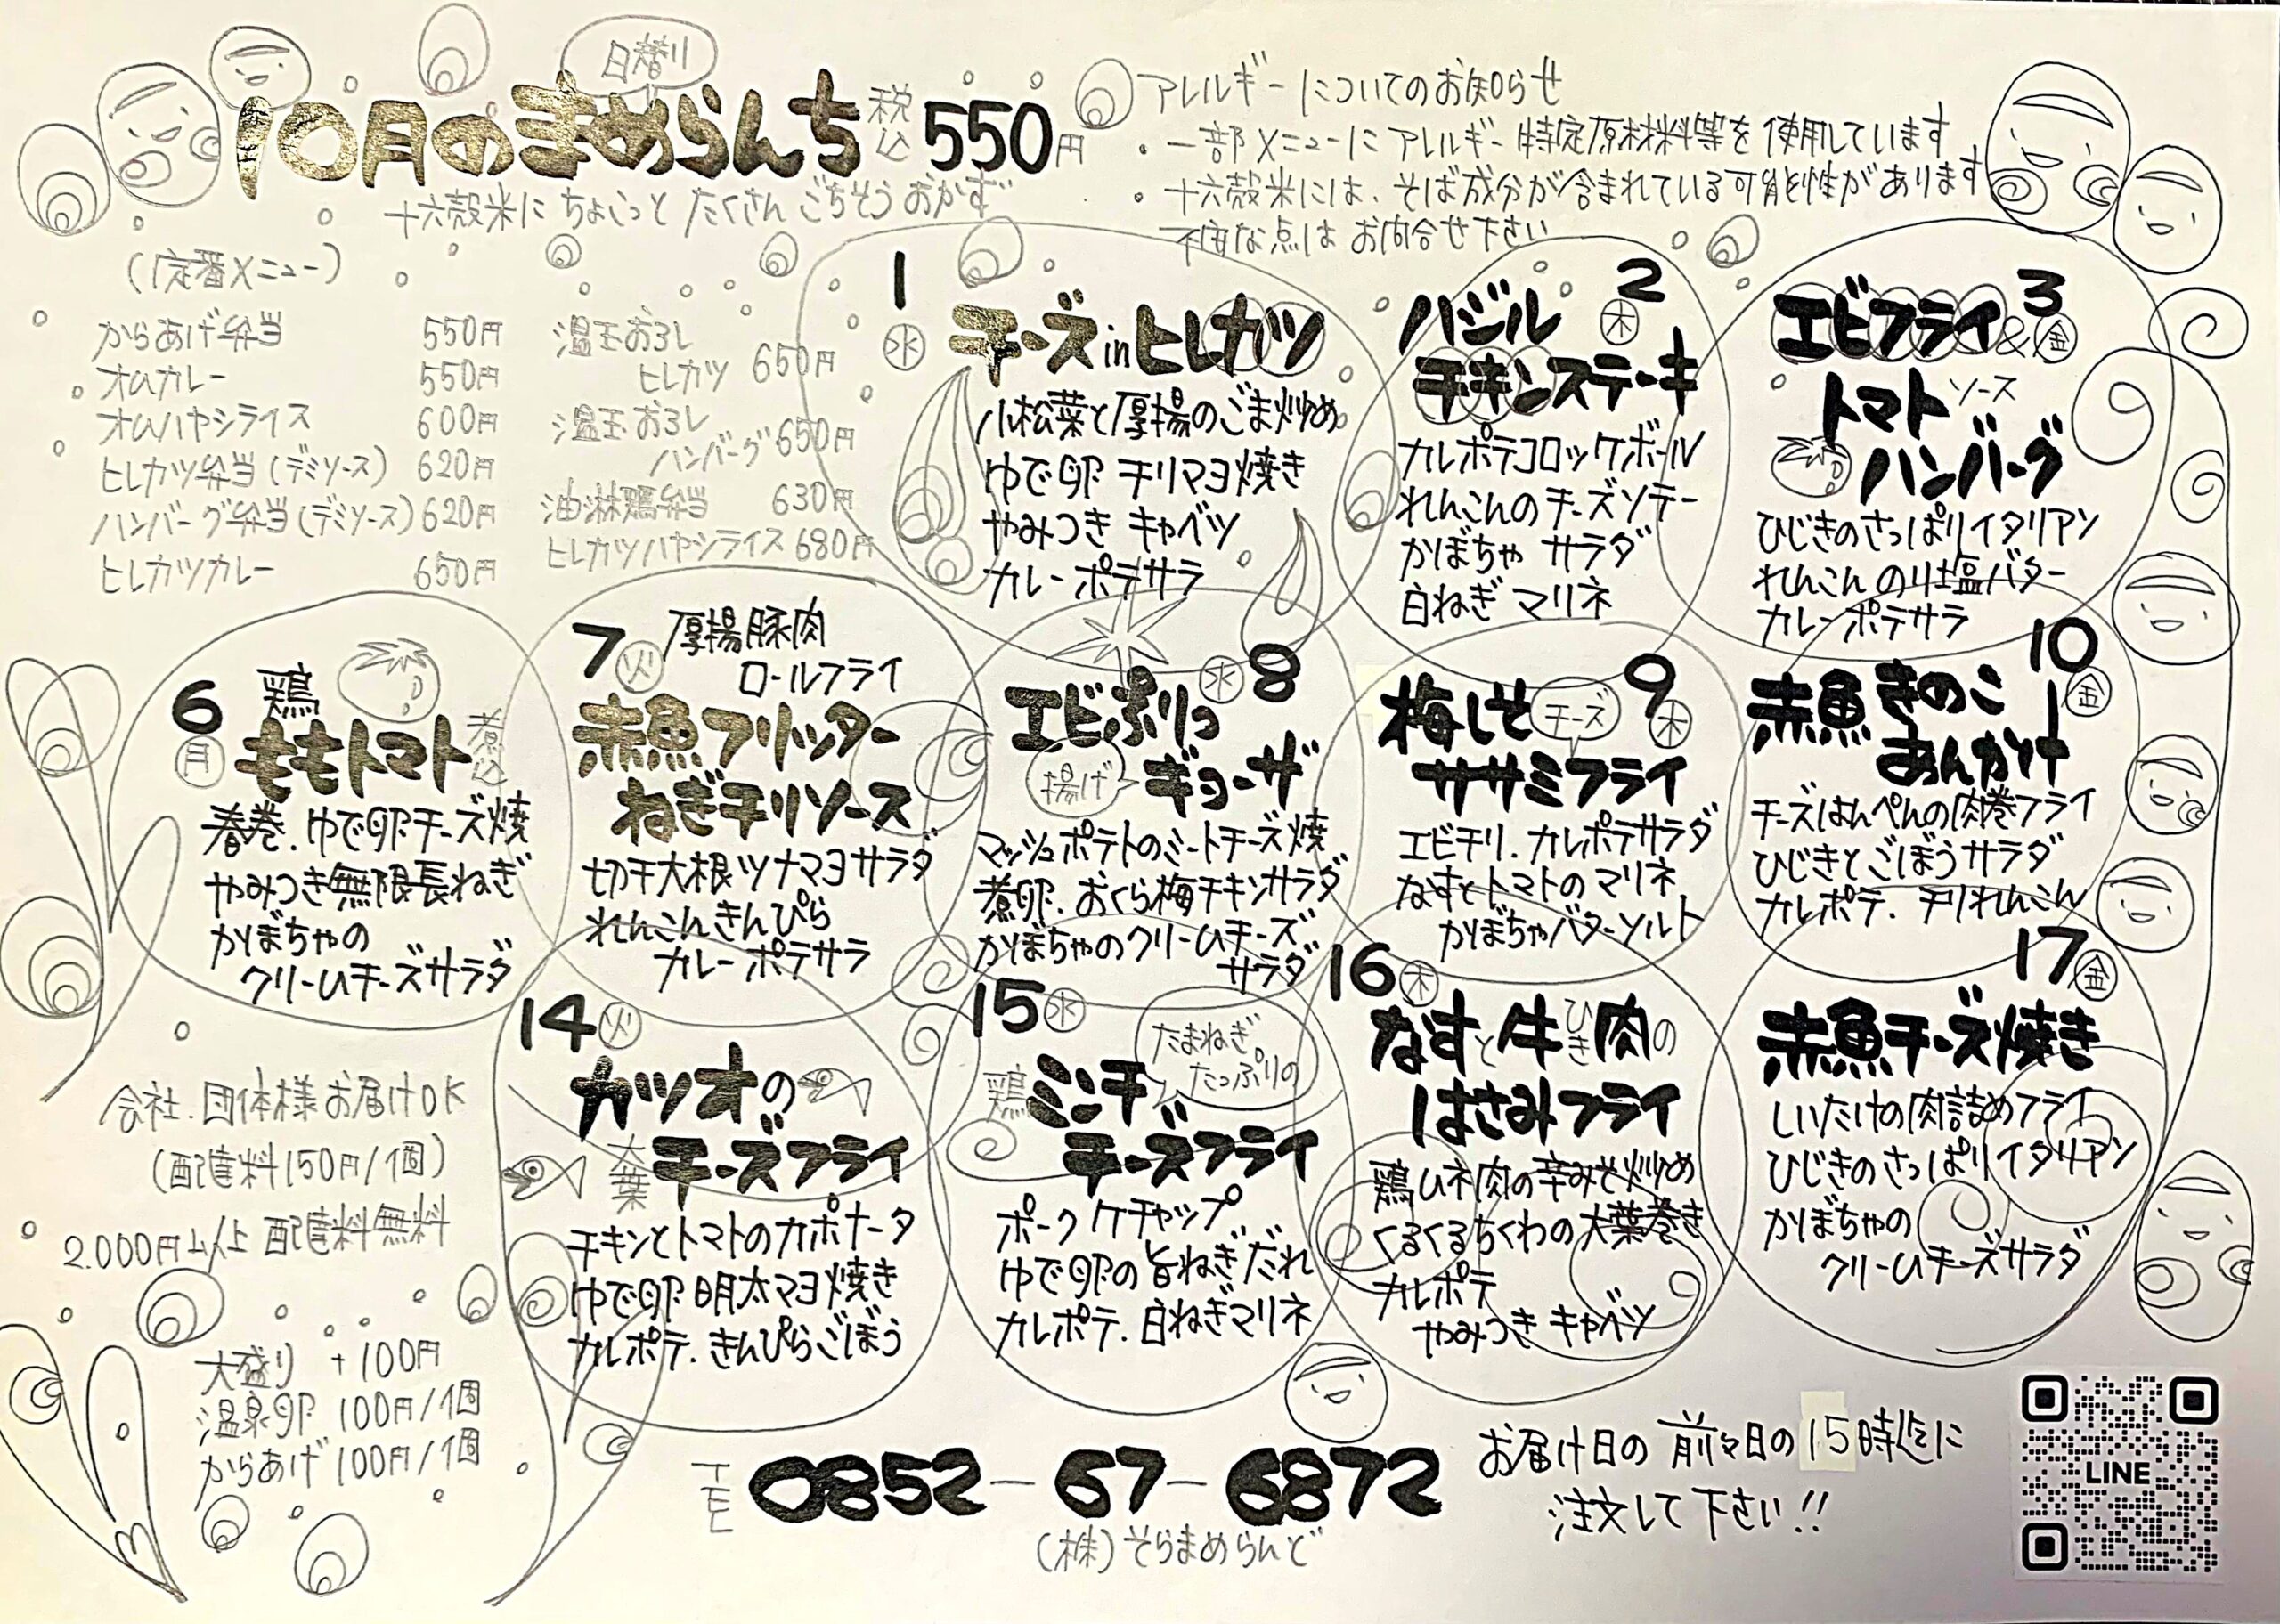 日替り
10月のまめらんち 税込 550円
十六穀米に ちょこっと たくさん ごちそう おかず
アレルギーについてのお知らせ
・一部メニューに アレルギー特定原材料等を使用しています
・十六穀米には、そば成分が含まれている可能性があります
不明な点は お問合せ下さい
(定番メニュー)
からあげ弁当 550円
オムカレー 550円
オムハヤシライス 600円
ヒレカツ弁当(デミソース) 620円
ハンバーグ弁当(デミソース) 620円
ヒレカツカレー 650円
温玉おろし
ヒレカツ 650円
温玉おろし
ハンバーグ 650円
油淋鶏弁当 630円
ヒレカツハヤシライス 680円
1 水
チーズinヒレカツ
小松菜と厚揚のごま炒め
ゆで卵 チリマヨ焼き
やみつき キャベツ
カレーポテサラ
2 木
バジル
チキンステーキ
カレポテコロッケボール
れんこんのチーズソテー
かぼちゃ サラダ
白ねぎ マリネ
3 金
エビフライ&
トマトソース
ハンバーグ
ひじきのさっぱりイタリアン
れんこんのり塩バター
カレーポテサラ
6 月
鶏
ももトマト煮込
春巻.ゆで卵チーズ焼
やみつき無限長ねぎ
かぼちゃの
クリームチーズサラダ
7 火
厚揚豚肉
ロールフライ
赤魚フリッター
ねぎチリソース
切干大根ツナマヨサラダ
れんこんきんぴら
カレーポテサラ
8 水
エビぷりっ
揚げギョーザ
マッシュポテトのミートチーズ焼
煮卵.おくら梅チキンサラダ
かぼちゃのクリームチーズ
サラダ
9 木
梅しそチーズ
ササミフライ
エビチリ.カレポテサラダ
なすとトマトのマリネ
かぼちゃバターソルト
10 金
赤魚きのこ
あんかけ
チーズはんぺんの肉巻フライ
ひじきとごぼうサラダ
カレポテ. チリれんこん
14 火
カツオの
大葉チーズフライ
チキンとトマトのカポナータ
ゆで卵 明太マヨ焼き
カレポテ.きんぴらごぼう
15 水
たまねぎ
たっぷりの
鶏ミンチ
チーズフライ
ポークケチャップ
ゆで卵の旨ねぎだれ
カレポテ.白ねぎマリネ
16 木
なすと牛ひき肉の
はさみフライ
鶏ムネ肉の辛みそ炒め
くるくるちくわの大葉巻き
カレポテ
やみつき キャベツ
17 金
赤魚チーズ焼き
しいたけの肉詰めフライ
ひじきのさっぱりイタリアン
かぼちゃの
クリームチーズサラダ
会社.団体様お届けOK
(配達料150円/1個)
2.000円以上 配達料無料
大盛り +100円
温泉卵 100円/1個
からあげ 100円/1個
TEL 0852-67-6872
(株)そらまめらんど
お届け日の 前々日の15時迄に
注文して下さい!!
LINE